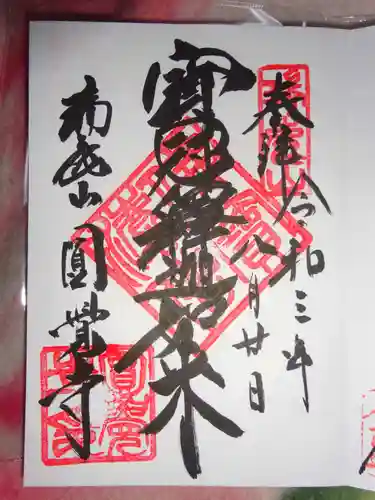 奉拝 令和三年
八月廿日
寶冠釋迦如来
瑞鹿山 圓覺寺